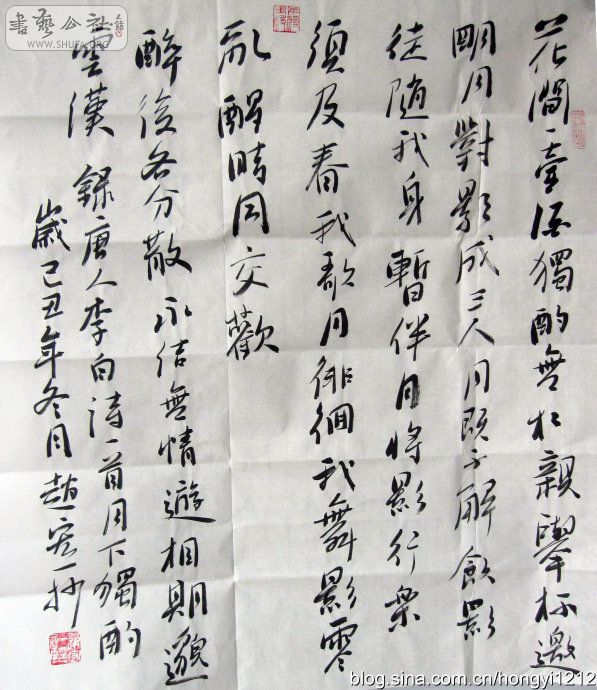 花間一壺酒獨酌無相親舉杯邀
明月對影成三人月既不解飲影
徒隨我身暫伴月將影行樂
須及春我歌月徘徊我舞影零
亂醒時同交歡
醉後各分散永结無情遊相期邈
雲漢 録唐人李白詩一首月下獨酌
歲己丑年冬月趙宏一抄
書藝公社
WWW.SHUFA.ORG
blog.sina.com.cn/hongyi1212